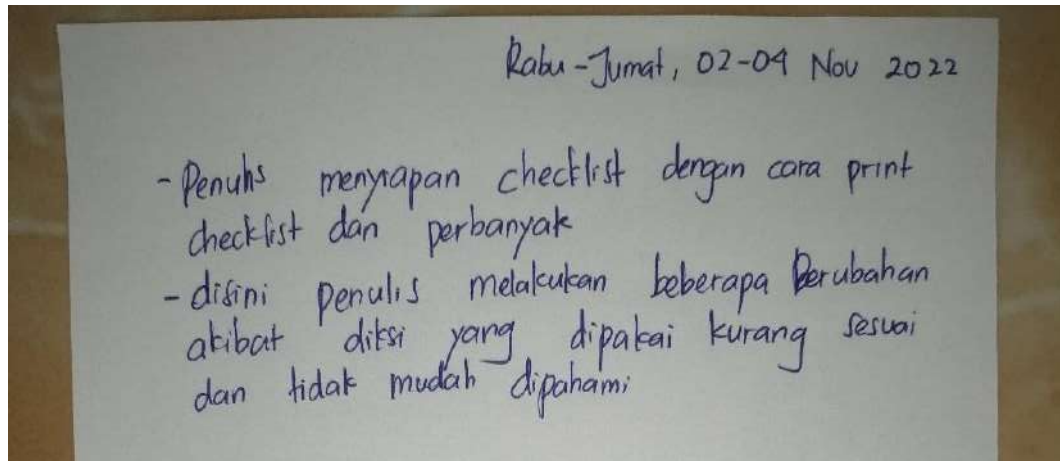 Rabu - Jumat, 02-04 Nov 2022
- Penulis menyiapan checklist dengan cara print
checklist dan perbanyak
- disini penulis melakukan beberapa Perubahan
akibat diksi yang dipakai kurang sesuai
dan tidak mudah dipahami